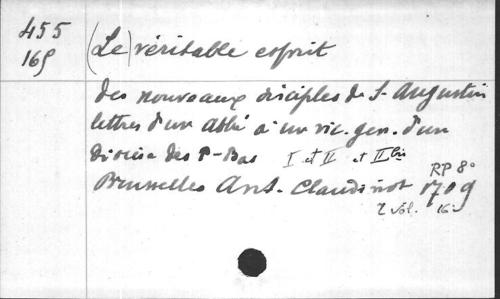 455
169
(Le) véritable esprit
des nouveaux disciples de S. Augustin
lettres d'un abbé à un vic. gen. d'un
diocèse des P-Bas I et II et II bis
RP 8°
Brusselles Ant. Claudinot 1709
2 vol. 16